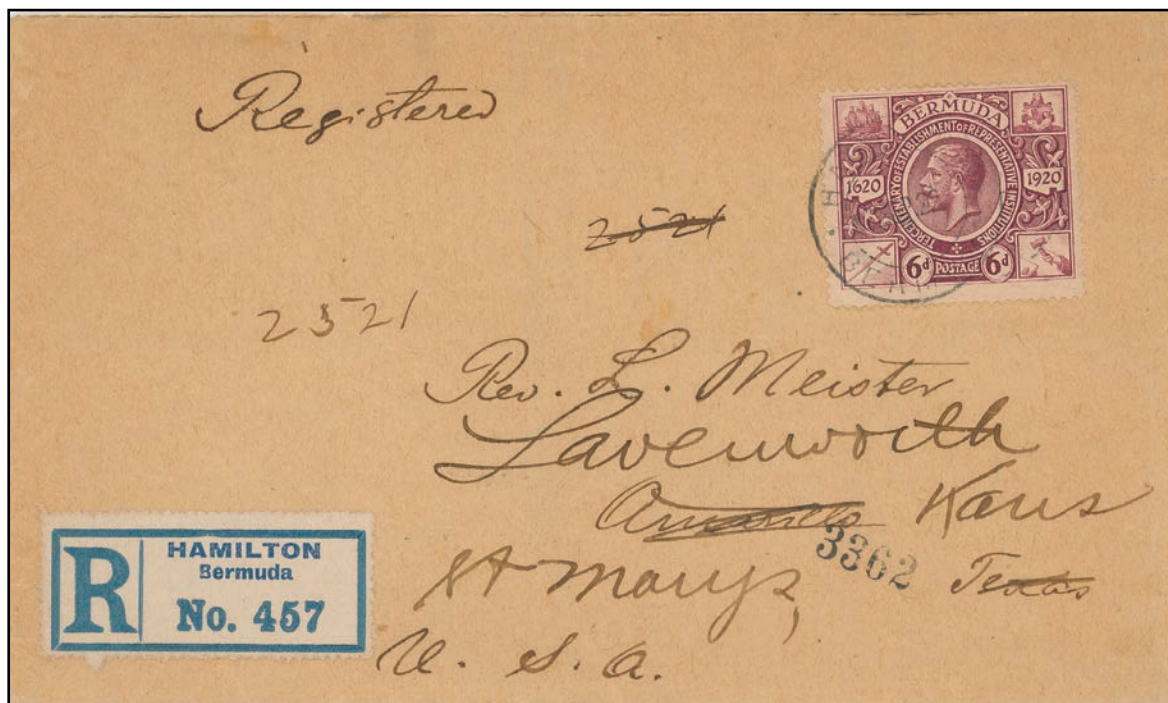 Registered
BERMUDA
TERCENTENARY OF ESTABLISHMENT OF REPRESENTATIVE INSTITUTIONS
1620 1920
6d POSTAGE 6d
2521
2521
Rev. L. Meister
Lavenworth
Kans
3362
St Marys, Texas
U. S. A.
R
HAMILTON
Bermuda
No. 457